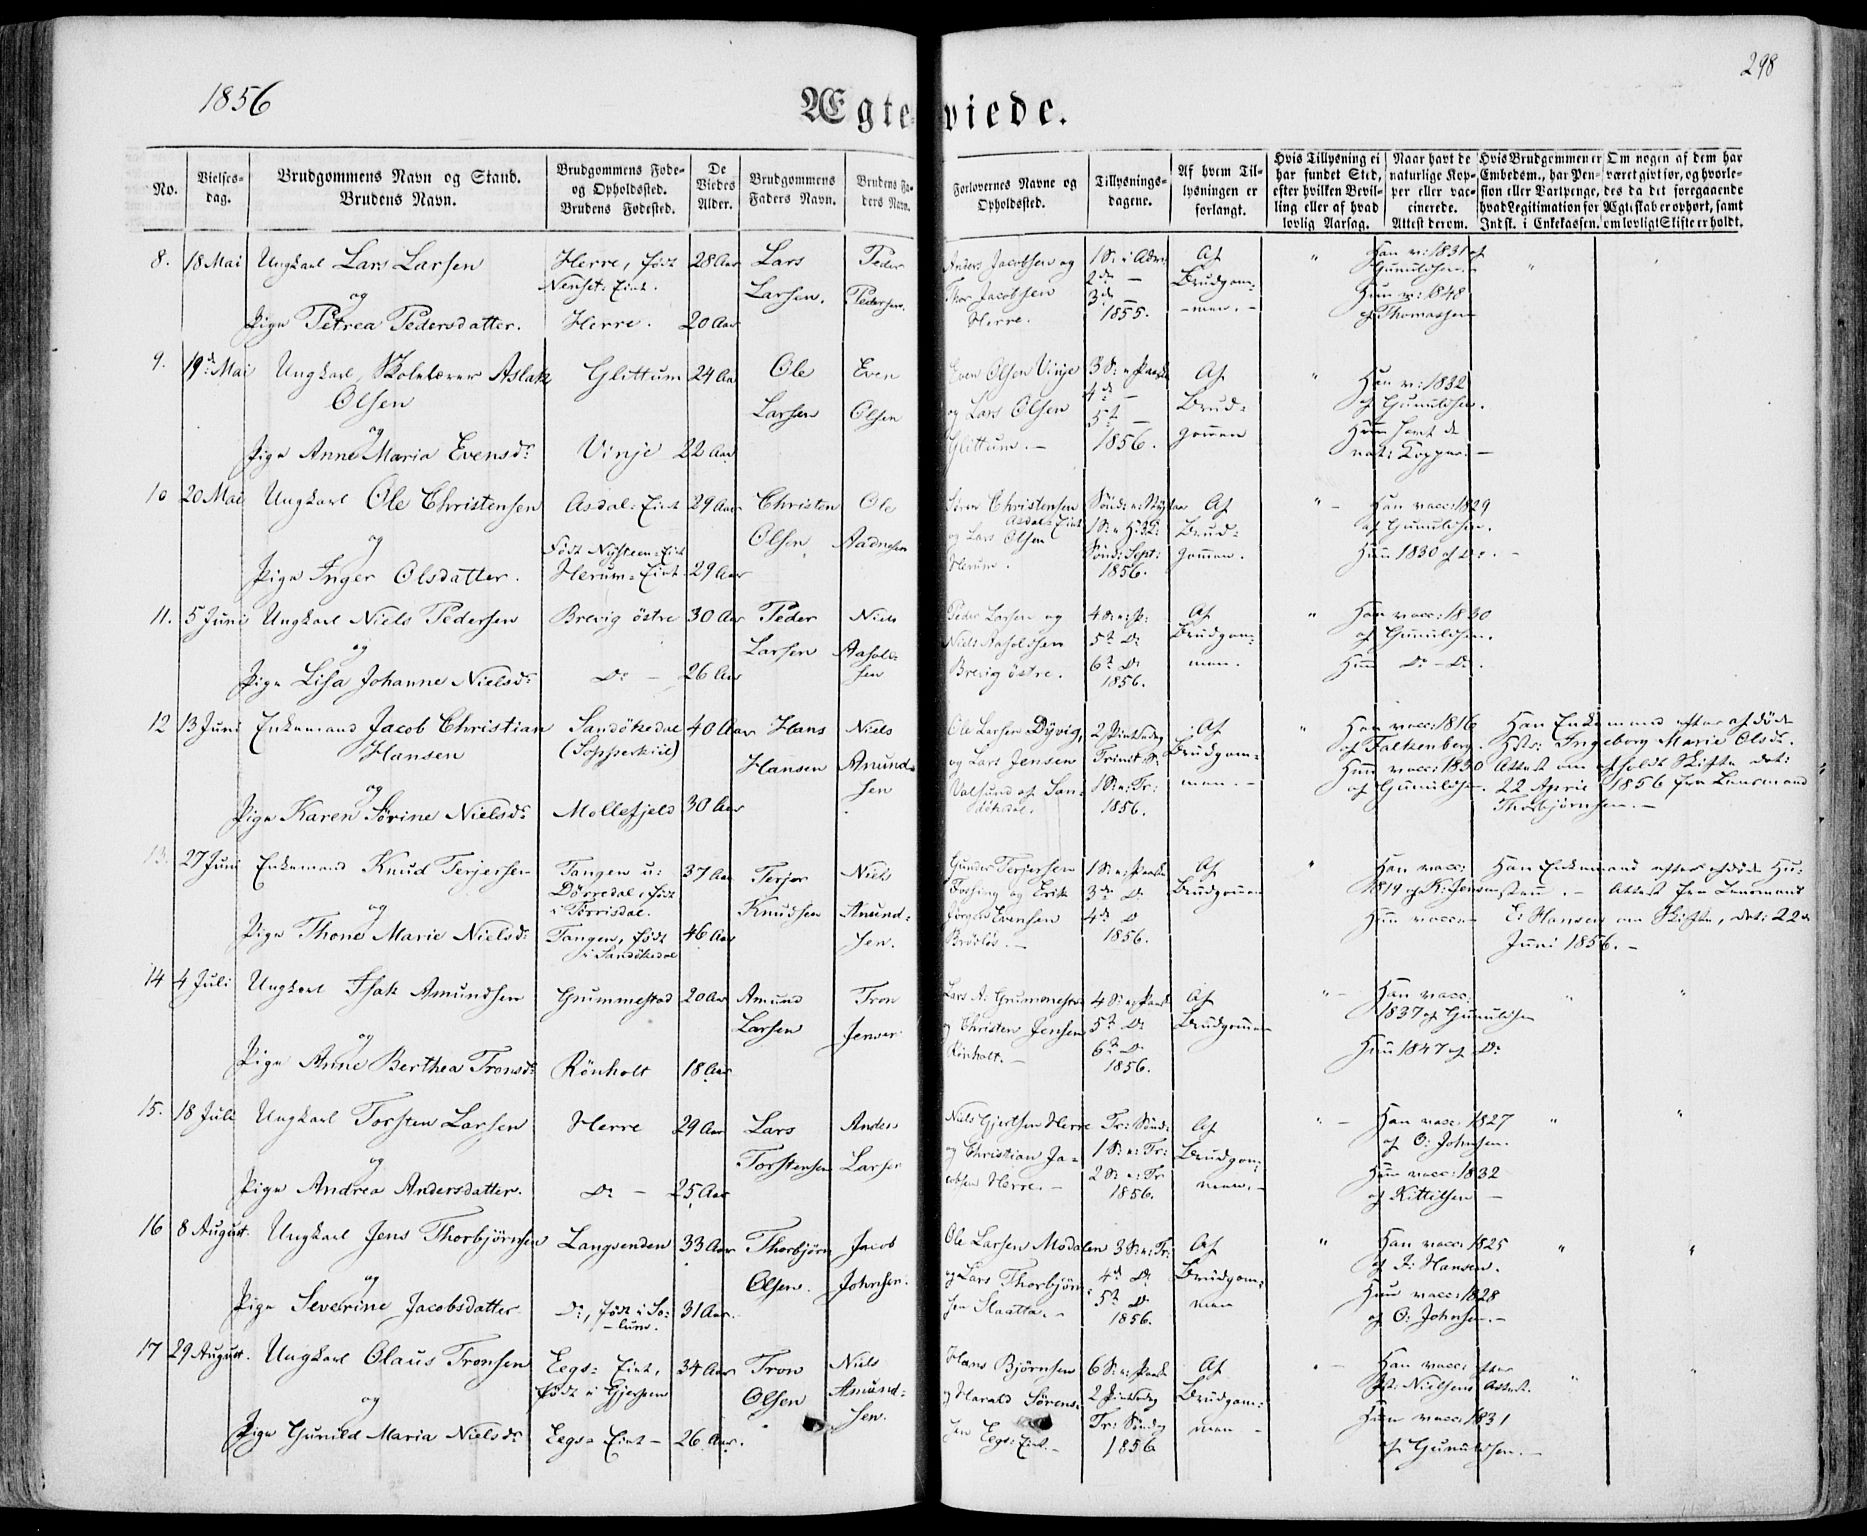 1856
298
Ægteviede.
No.
Vielses-
dag.
Brudgommens Navn og Stand.
Brudens Navn.
Brudgommens Føde-
og Opholdssted.
Brudens Fødested.
De
Viedes
Alder.
Brudgommens
Faders Navn.
Brudens Fa-
ders Navn.
Forlovernes Navne og
Opholdssted.
Tillysnings-
dagene.
Af hvem Til-
lysningen er
forlangt.
Hvis Tillysning ei
har fundet Sted,
efter hvilken Bevil-
ling eller af hvad
lovlig Aarsag.
Naar havt de
naturlige Kop-
per eller vac-
cinerede.
Attest derom.
Hvis Brudgommen er
Embedsm., har Pen-
sion eller Vartpenge,
hvad Legitimation for
Indst. i Enkekassen.
Om nogen af dem har
været givt før, og hvorle-
des da det foregaaende
Ægteskab er ophørt, samt
om lovligt Skifte er holdt.
8. 18 Mai Ungkarl Lars Larsen
og
Pige Petrea Pedersdatter.
Herre, født
Herre.
28 Aar
20 Aar
Lars
Larsen.
Peder
Pedersen.
Anders Jacobsen og
Thor Jacobsen
Herre.
1 S. i Adv.
2de —
3de —
1855.
Af
Brudgom-
men. -
Han v: 1831 af
Gunuldsen.
Hun v: 1848
af Thomassen
9. 19de Mai Ungkarl, Skolelærer Aslak
Olsen
og
Pige Anne Maria Evensdr
Glittum
Vinje
24 Aar
22 Aar
Ole
Larsen
Even
Olsen
Even Olsen Vinje
og Lars Olsen
Glittum. -
3 S. e. Paaske
4de —
5te —
1856.
Af
Brud-
gommen
Han v: 1832
af Gunuldsen.
Hun havt de
nat: Kopper. -
10 20 Mai Ungkarl Ole Christensen
og
Pige Inger Olsdatter.
Asdal-Eiet
Født Nysteen-Eiet
Herum-Eiet
29 Aar
29 Aar
Christen
Olsen
Ole
Aadnesen
Christensen
Asdal-Eiet
og Lars Olsen
Herum.
1 S. e. H: 3 K:
Sønd: Sept:
1856.
Af
Brud-
gommen.
Han vacc: 1829
af Gunuldsen.
Hun 1830 af Do. -
11. 5 Juni Ungkarl Niels Pedersen
og
Pige Lisa Johanne Nielsdr
Brevig østre
Do —
30 Aar
26 Aar
Peder
Larsen
Niels
Aasols-
sen
Peder Larsen og
Niels Aasolssen
Brevig østre.
5te Do
6te Do
1856.
Af
Brudgom-
men.
Han vacc: 1830
af Gunuldsen.
Hun Do - Do.
12 13 Juni Enkemand Jacob Christian
Hansen
og
Pige Karen Sørine Nielsdr
Sandøkedal
(Sopperkiil)
Mollefjeld
40 Aar
30 Aar
Hans
Hansen
Niels
Anund-
sen
Ole Larsen Dyvig,
og Lars Jensen
Valsund af San-
døkedal.
2 Pintsedag
Trinit. S.
1 S. e. Tr:
1856.
Af
Brudgom-
men. -
Han vacc: 1816
af Falkenberg.
Hun vacc: 1830
af Gunuldsen.
Han Enkemand efter afdøde
Hstr: Ingeborg Marie Olsdr.
Attest om afholdt Skifte dat:
22 April 1856 fra Lensmand
Thorbjørnsen. -
13. 27 Juni Enkemand Knud Terjersen
og
Pige Thone Marie Nielsdr
Tangen u:
Dørredal, født
i Torrisdal.
Tangen, født
i Sandøkedal
37 Aar
46 Aar
Terjer
Knudsen
Niels
Anund-
sen.
Gunder Terjersen
Fossing og Erik
Jørgen Evensen
1 S. e. Paaske
3de Do
4de Do
1856.
Af
Brudgommen
Han vacc:
1819 af K: Jensen
Hun vacc: -
Han Enkemand efter afdøde Hu-
stru. - Attest fra Lensmand
E: Hansen om Skifte, dat: 22de
Juni 1856. -
14 4 Juli Ungkarl Isak Amundsen
og
Pige Anne Berthea Tronsdr
Grummestad
Rönholt
20 Aar
18 Aar
Amund
Larsen
Tron
Jensen
og Christen Jensen
Rönholt. -
4 S. e. Paaske
5te Do
6te Do
1856.
Af
Brudgommen
Han vacc:
1837 af Gunuldsen
Hun 1847 af Do
15. 18 Juli Ungkarl Torsten Larsen
og
Pige Andrea Andersdatter.
Herre
Do —
29 Aar
25 Aar
Lars
Torstensen
Anders
Larsen
Niels Gjertsen Herre
og Christian Ja-
cobsen Herre. -
Tr: Sønd:
1 S. e: Tr:
2 S. e: Tr
1856.
Af
Brudgom-
men. -
Han vacc: 1827
af O: Johnsen.
Hun vacc: 1832
af Kittilsen —
16 8 August. Ungkarl Jens Thorbjørnsen
og
Pige Severine Jacobsdatter
Langsenden
Do, født i So-
lum.
33 Aar
31 Aar.
Thorbjørn
Olsen.
Jacob
Johnsen.
Ole Larsen Modalen
og Lars Thorbjørn-
sen Slaatta. -
3 S. e: Tr:
4de Do
5te Do
1856.
Af
Brudgom-
men
Han vacc: 1825
af J: Hansen.
Hun vacc: 1828
af O: Johnsen. -
17 29 August. Ungkarl Olaus Tronsen
og
Pige Gunild Maria Nielsdr
Eegs-Eiet,
født i Gjerpen
Eegs-Eiet -
34 Aar
26 Aar.
Tron
Olsen
Niels
Amund-
sen.
Hans Bjørnsen
og Harald Sørens-
sen Eegs-Eiet. -
6 S. e: Paaske
2 Pintsedag
Tr: Søndag
1856
Af
Brudgom-
men -
Han vacc: efter
Nielsens Attest.
Hun vacc: 1831
af Gunuldsen. -